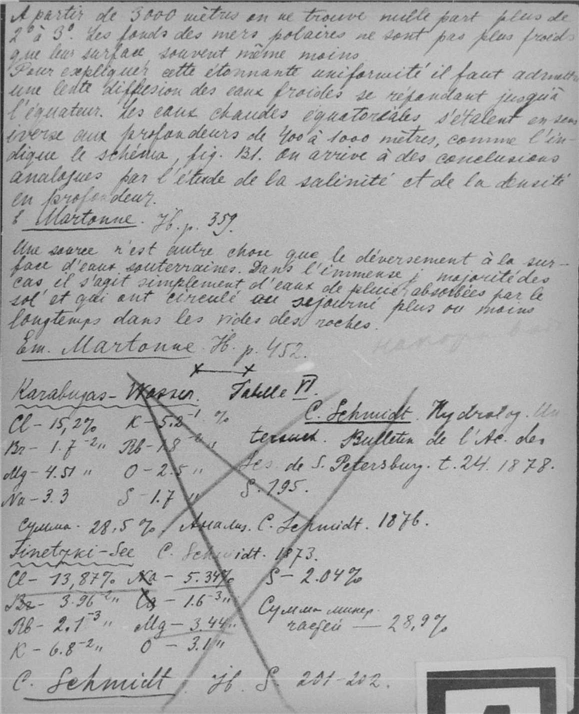 A partir de 3000 mètres on ne trouve nulle part plus de
2° à 3°. Les fonds des mers polaires ne sont pas plus froids
que leur surface souvent même moins
Pour expliquer cette étonnante uniformité il faut admettre
une lente diffusion des eaux froides se répandant jusqu'à
l'équateur. Les eaux chaudes équatoriales s'étalent en sens
iverse aux profondeurs de 400 à 1000 mètres, comme l'in-
dique le schéma, fig. 131. On arrive à des conclusions
analogues par l'étude de la salinité et de la densité
en profondeur.
E Martonne. Ib. p. 359.
Une source n'est autre chose que le déversement à la sur-
face d'eaux souterraines. Dans l'immense majorité des
cas, il s'agit simplement d'eaux de pluie absorbées par le
sol et qui ont circulé ou séjourné plus ou moins
longtemps dans les vides des roches.
Em. Martonne. Ib. p. 452.
Karabugas-Wasser. Tabelle VI
Cl – 15,2% K – 5.2⁻¹ %
C. Schmidt. Hydrolog. Un
Br – 1.7⁻² " Rb – 1.8⁻² "
tersuch. Bulletin de l'Ac. des
Mg – 4.51 " O – 2.5 "
Sc. de S. Petersburg. t. 24. 1878.
Na – 3.3 S – 1.7 " S. 195.
Сумма 28,5%. Анализ. C. Schmidt. 1876.
Tinetzki-See C. Schmidt. 1873.
Cl – 13,87% Na – 5.34% S – 2.04%
Br – 3.96⁻² " Ca – 1.6⁻³ "
Сумма минер.
Rb – 2.1⁻³ " Mg – 3.44 "
частей — 28,9%
K – 6.8⁻² " O – 3.1 "
C. Schmidt. Ib. S. 201-202.